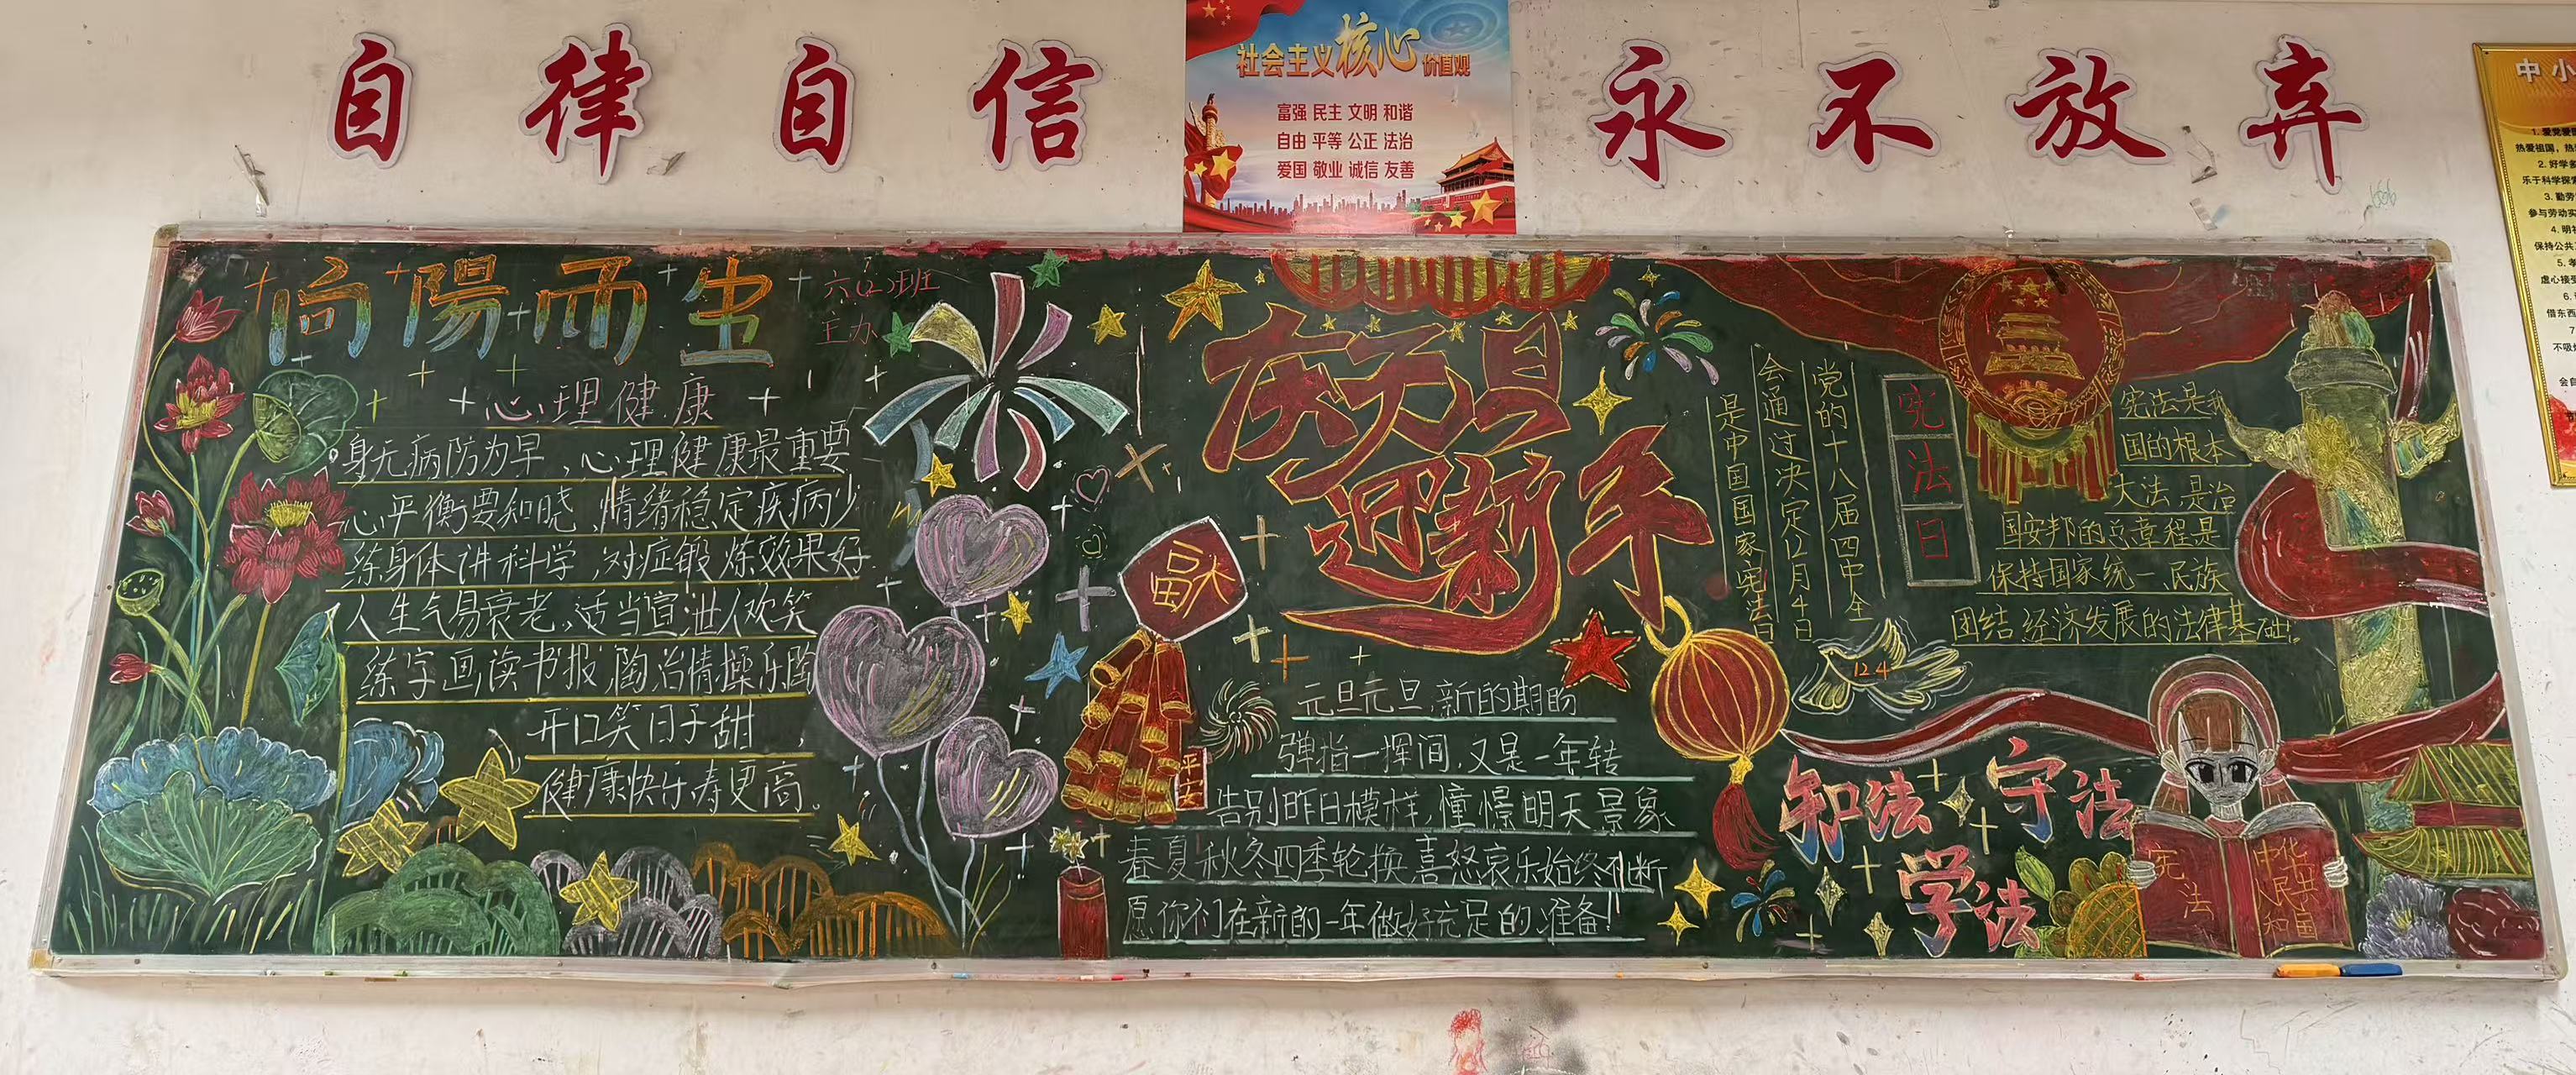 自律自信
永不放弃
社会主义核心价值观
富强 民主 文明 和谐
自由 平等 公正 法治
爱国 敬业 诚信 友善
向陽而生
六(2)班
主办
心理健康
身无病防为早，心理健康最重要
心平衡要知晓，情绪稳定疾病少
练身体讲科学，对症锻炼效果好
人生气易衰老，适当宣泄人欢笑
练字画读书报，陶冶情操乐陶
开口笑日子甜，
健康快乐寿更高。
庆元旦
迎新年
平安
元旦元旦，新的期盼
弹指一挥间，又是一年转
告别昨日模样，憧憬明天景象
春夏秋冬四季轮换喜怒哀乐始终不断
愿你们在新的一年做好充足的准备！
宪法日
党的十八届四中全
会通过决定12月4日
是中国国家宪法日
宪法是我
国的根本
大法，是治
国安邦的总章程是
保持国家统一，民族
团结经济发展的法律基础。
12.4
知法 守法
学法
宪法
中华
人民共
和国
中小
1.爱党爱
热爱祖国，热
2.好学
乐于科学探
3.勤劳
参与劳动实
4.明礼
保持公共
5.孝
虚心接受
6.
借东西
7
不吸
会自
666